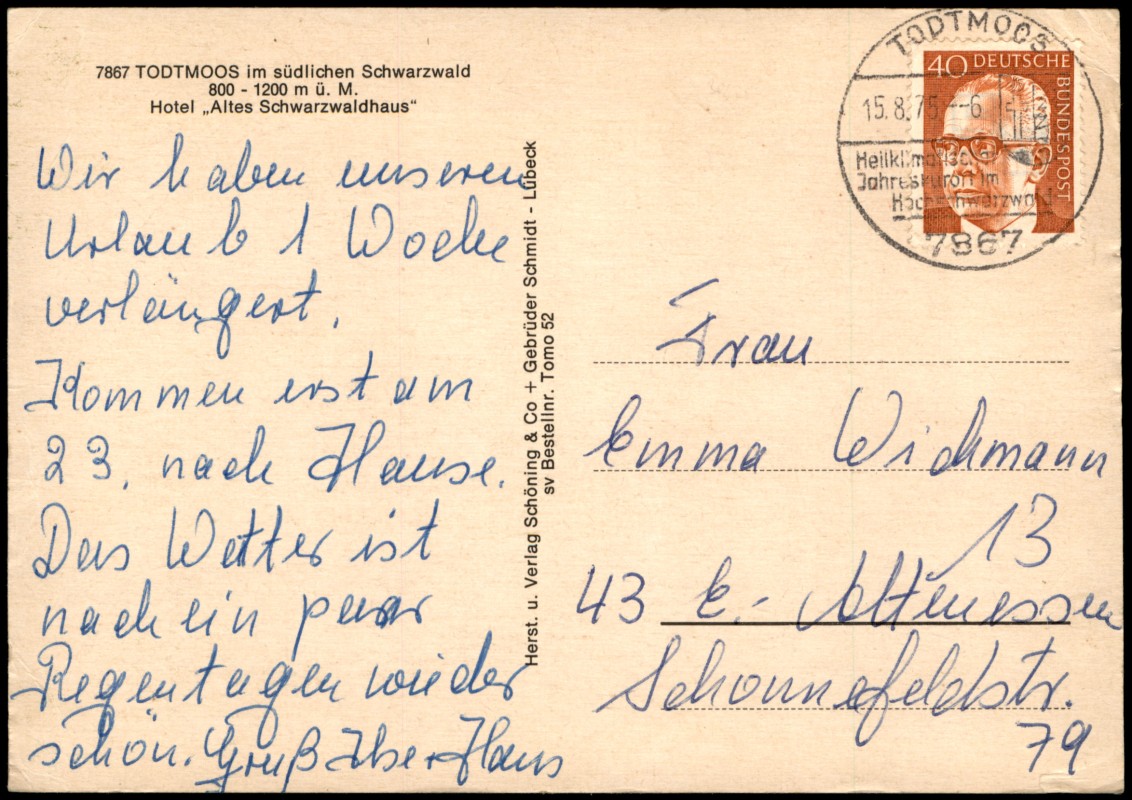 7867 TODTMOOS im südlichen Schwarzwald
800 - 1200 m ü. M.
Hotel „Altes Schwarzwaldhaus“
Wir haben unseren
Urlaub 1 Woche
verlängert.
Kommen erst am
23. nach Hause.
Das Wetter ist
nach ein paar
Regentagen wieder
schön. Gruß Ilse Hans
Herst. u. Verlag Schöning & Co + Gebrüder Schmidt - Lübeck
sv Bestellnr. Tomo 52
TODTMOOS
15.8.75--6
Heilklimatisc.
Jahreskurort im
Hochschwarzwald
7867
40 DEUTSCHE
BUNDESPOST
Frau
Emma Wichmann
13
43 E.- Altenessen
Schonnefeldstr.
79